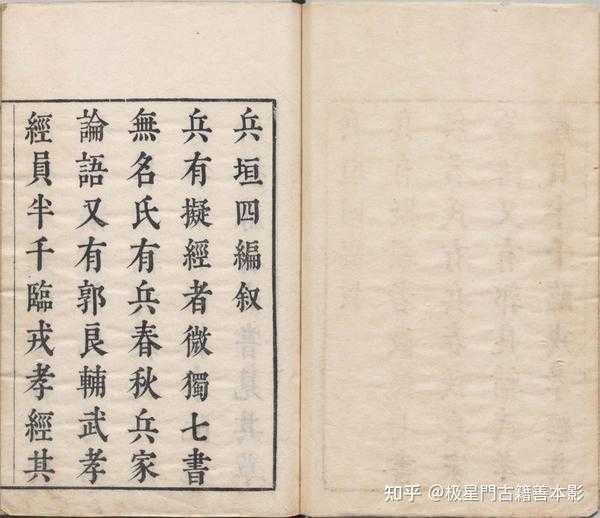 兵垣四編叙
兵有擬經者微獨七書
無名氏有兵春秋兵家
論語又有郭良輔武孝
經員半千臨戎孝經其
知乎 @极星門古籍善本影